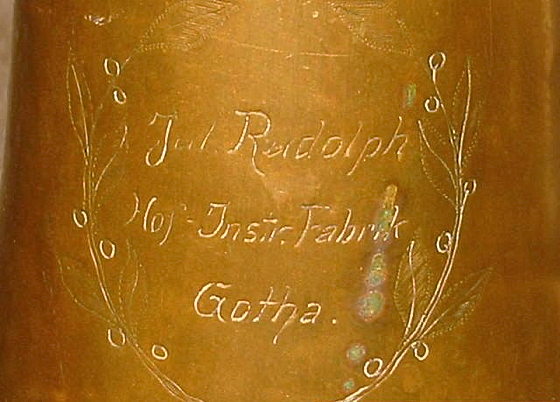 Jul Rudolph
Hof-Instr. Fabrik
Gotha.